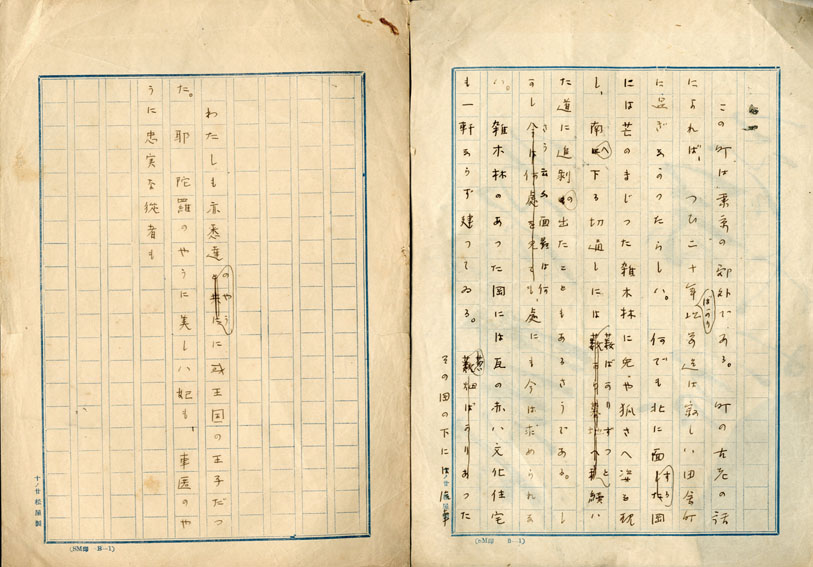 この町は東京の郊外である。町の古老の話
によれば、つひ二十年ばかり前迄は寂しい田舎町
に過ぎなかつたらしい。何でも北に面する岡
には芒のまじつた雑木林に兎や狐さへ姿を現
し、南へ下る切通しには藪ばかりずつと続い
た道に追剥の出たこともあるさうである。し
かし今は何處を見ても、處にも今は求められな
さう云ふ面影は何
い。雑木林のあつた岡には瓦の赤い文化住宅
も一軒ならず建つてゐる。葱畑ばかりあつた
その岡の下には
十ノ廿 松屋製
(SM印 B-1)
わたしも亦悉達のやうに或王国の王子だつ
た。耶陀羅のやうに美しい妃も、車匿のや
うに忠実な従者も
十ノ廿 松屋製
(SM印 B-1)